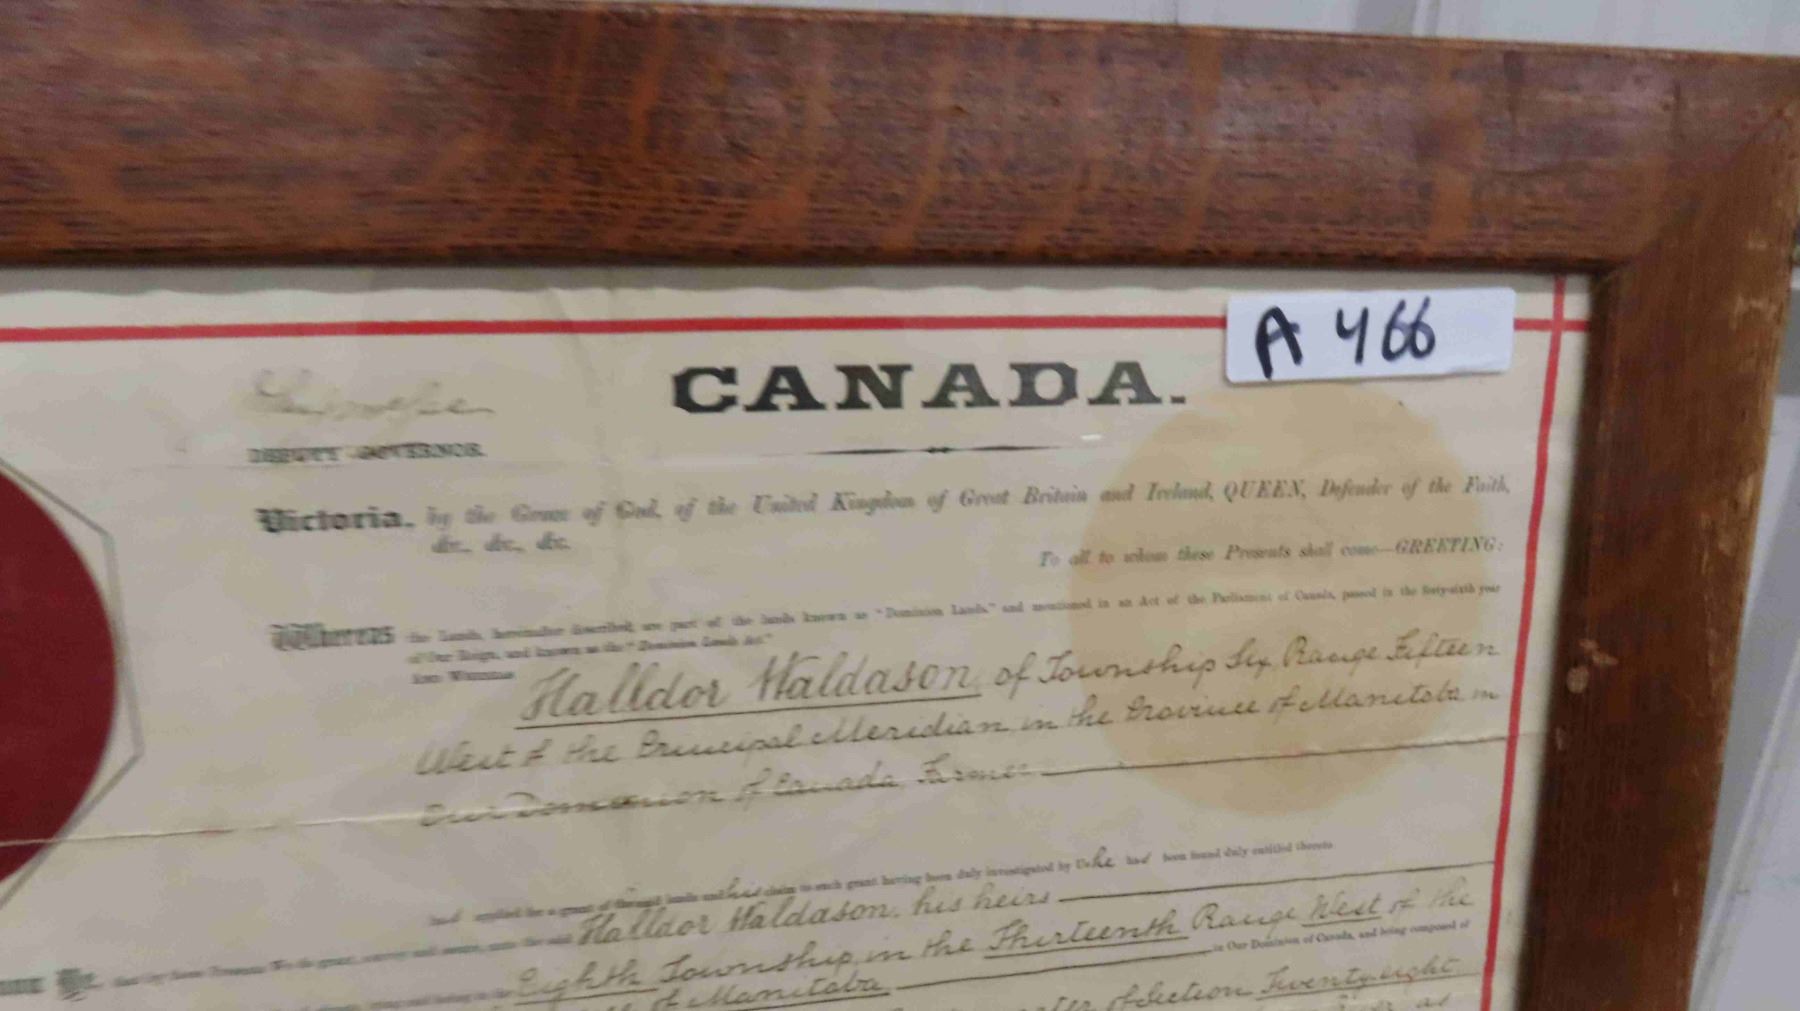 A 466
CANADA.
DEPUTY GOVERNOR.
Victoria, by the Grace of God, of the United Kingdom of Great Britain and Ireland, QUEEN, Defender of the Faith,
&c., &c., &c.
To all to whom these Presents shall come—GREETING:
Whereas the Lands, hereinafter described, are part of the lands known as "Dominion Lands," and mentioned in an Act of the Parliament of Canada, passed in the forty-sixth year
of Our Reign, and known as the "Dominion Lands Act."
AND WHEREAS Halldor Waldason, of Township Six, Range Fifteen
West of the Principal Meridian, in the Province of Manitoba in
Our Dominion of Canada, Farmer
had applied for a grant of the said lands and his claim to such grant having been duly investigated by Us he had been found duly entitled thereto
these Presents We do grant, convey and assure, unto the said Halldor Waldason, his heirs
Eighth Township, in the Thirteenth Range West of the
of Manitoba in Our Dominion of Canada, and being composed of
of Section Twenty-eight
as